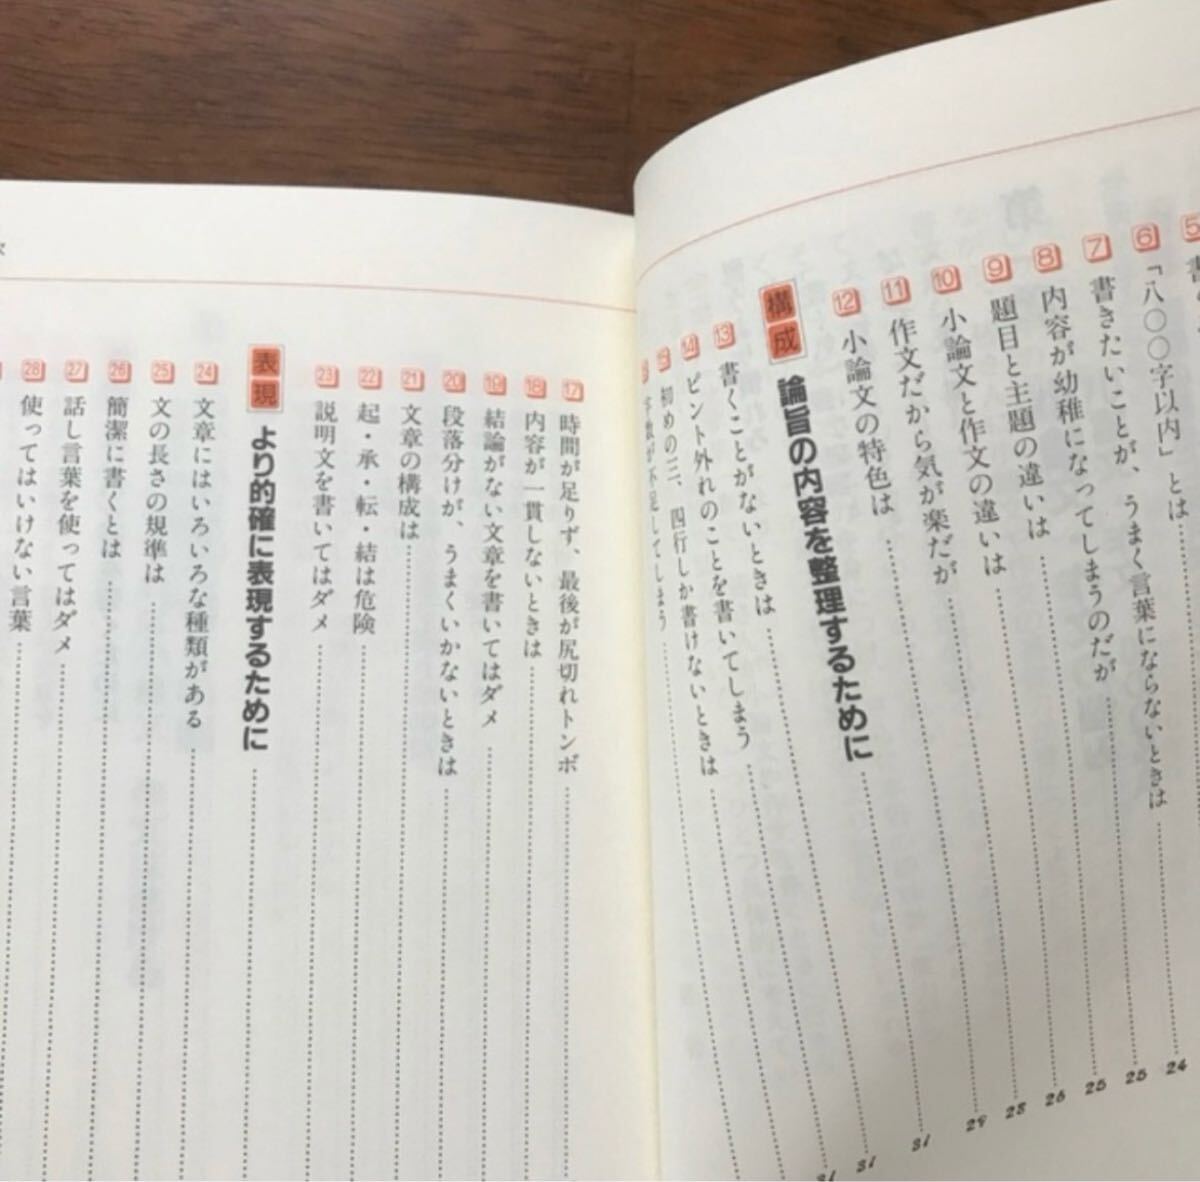 5
6 「八〇〇字以内」とは 24
7 書きたいことが、うまく言葉にならないときは 25
8 内容が幼稚になってしまうのだが 25
9 題目と主題の違いは 26
10 小論文と作文の違いは 28
11 作文だから気が楽だが 29
12 小論文の特色は 31
構成 論旨の内容を整理するために 31
13 書くことがないときは 31
14 ピント外れのことを書いてしまう
15 初めの三、四行しか書けないときは
字数が不足してしまう
17 時間が足りず、最後が尻切れトンボ
18 内容が一貫しないときは
19 結論がない文章を書いてはダメ
20 段落分けが、うまくいかないときは
21 文章の構成は
22 起・承・転・結は危険
23 説明文を書いてはダメ
表現 より的確に表現するために
24 文章にはいろいろな種類がある
25 文の長さの規準は
26 簡潔に書くとは
27 話し言葉を使ってはダメ
28 使ってはいけない言葉